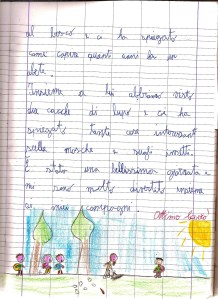 al bosco e ci ha spiegato
come capire quanti anni ha un
abete.
Insieme a lui abbiamo visto
di lupo e ci ha
spiegato tante cose interessanti
sulle mosche e sugli insetti.
È stata una bellissima giornata e
mi sono molto divertito insieme
ai miei compagni.
Ottimo lavoro